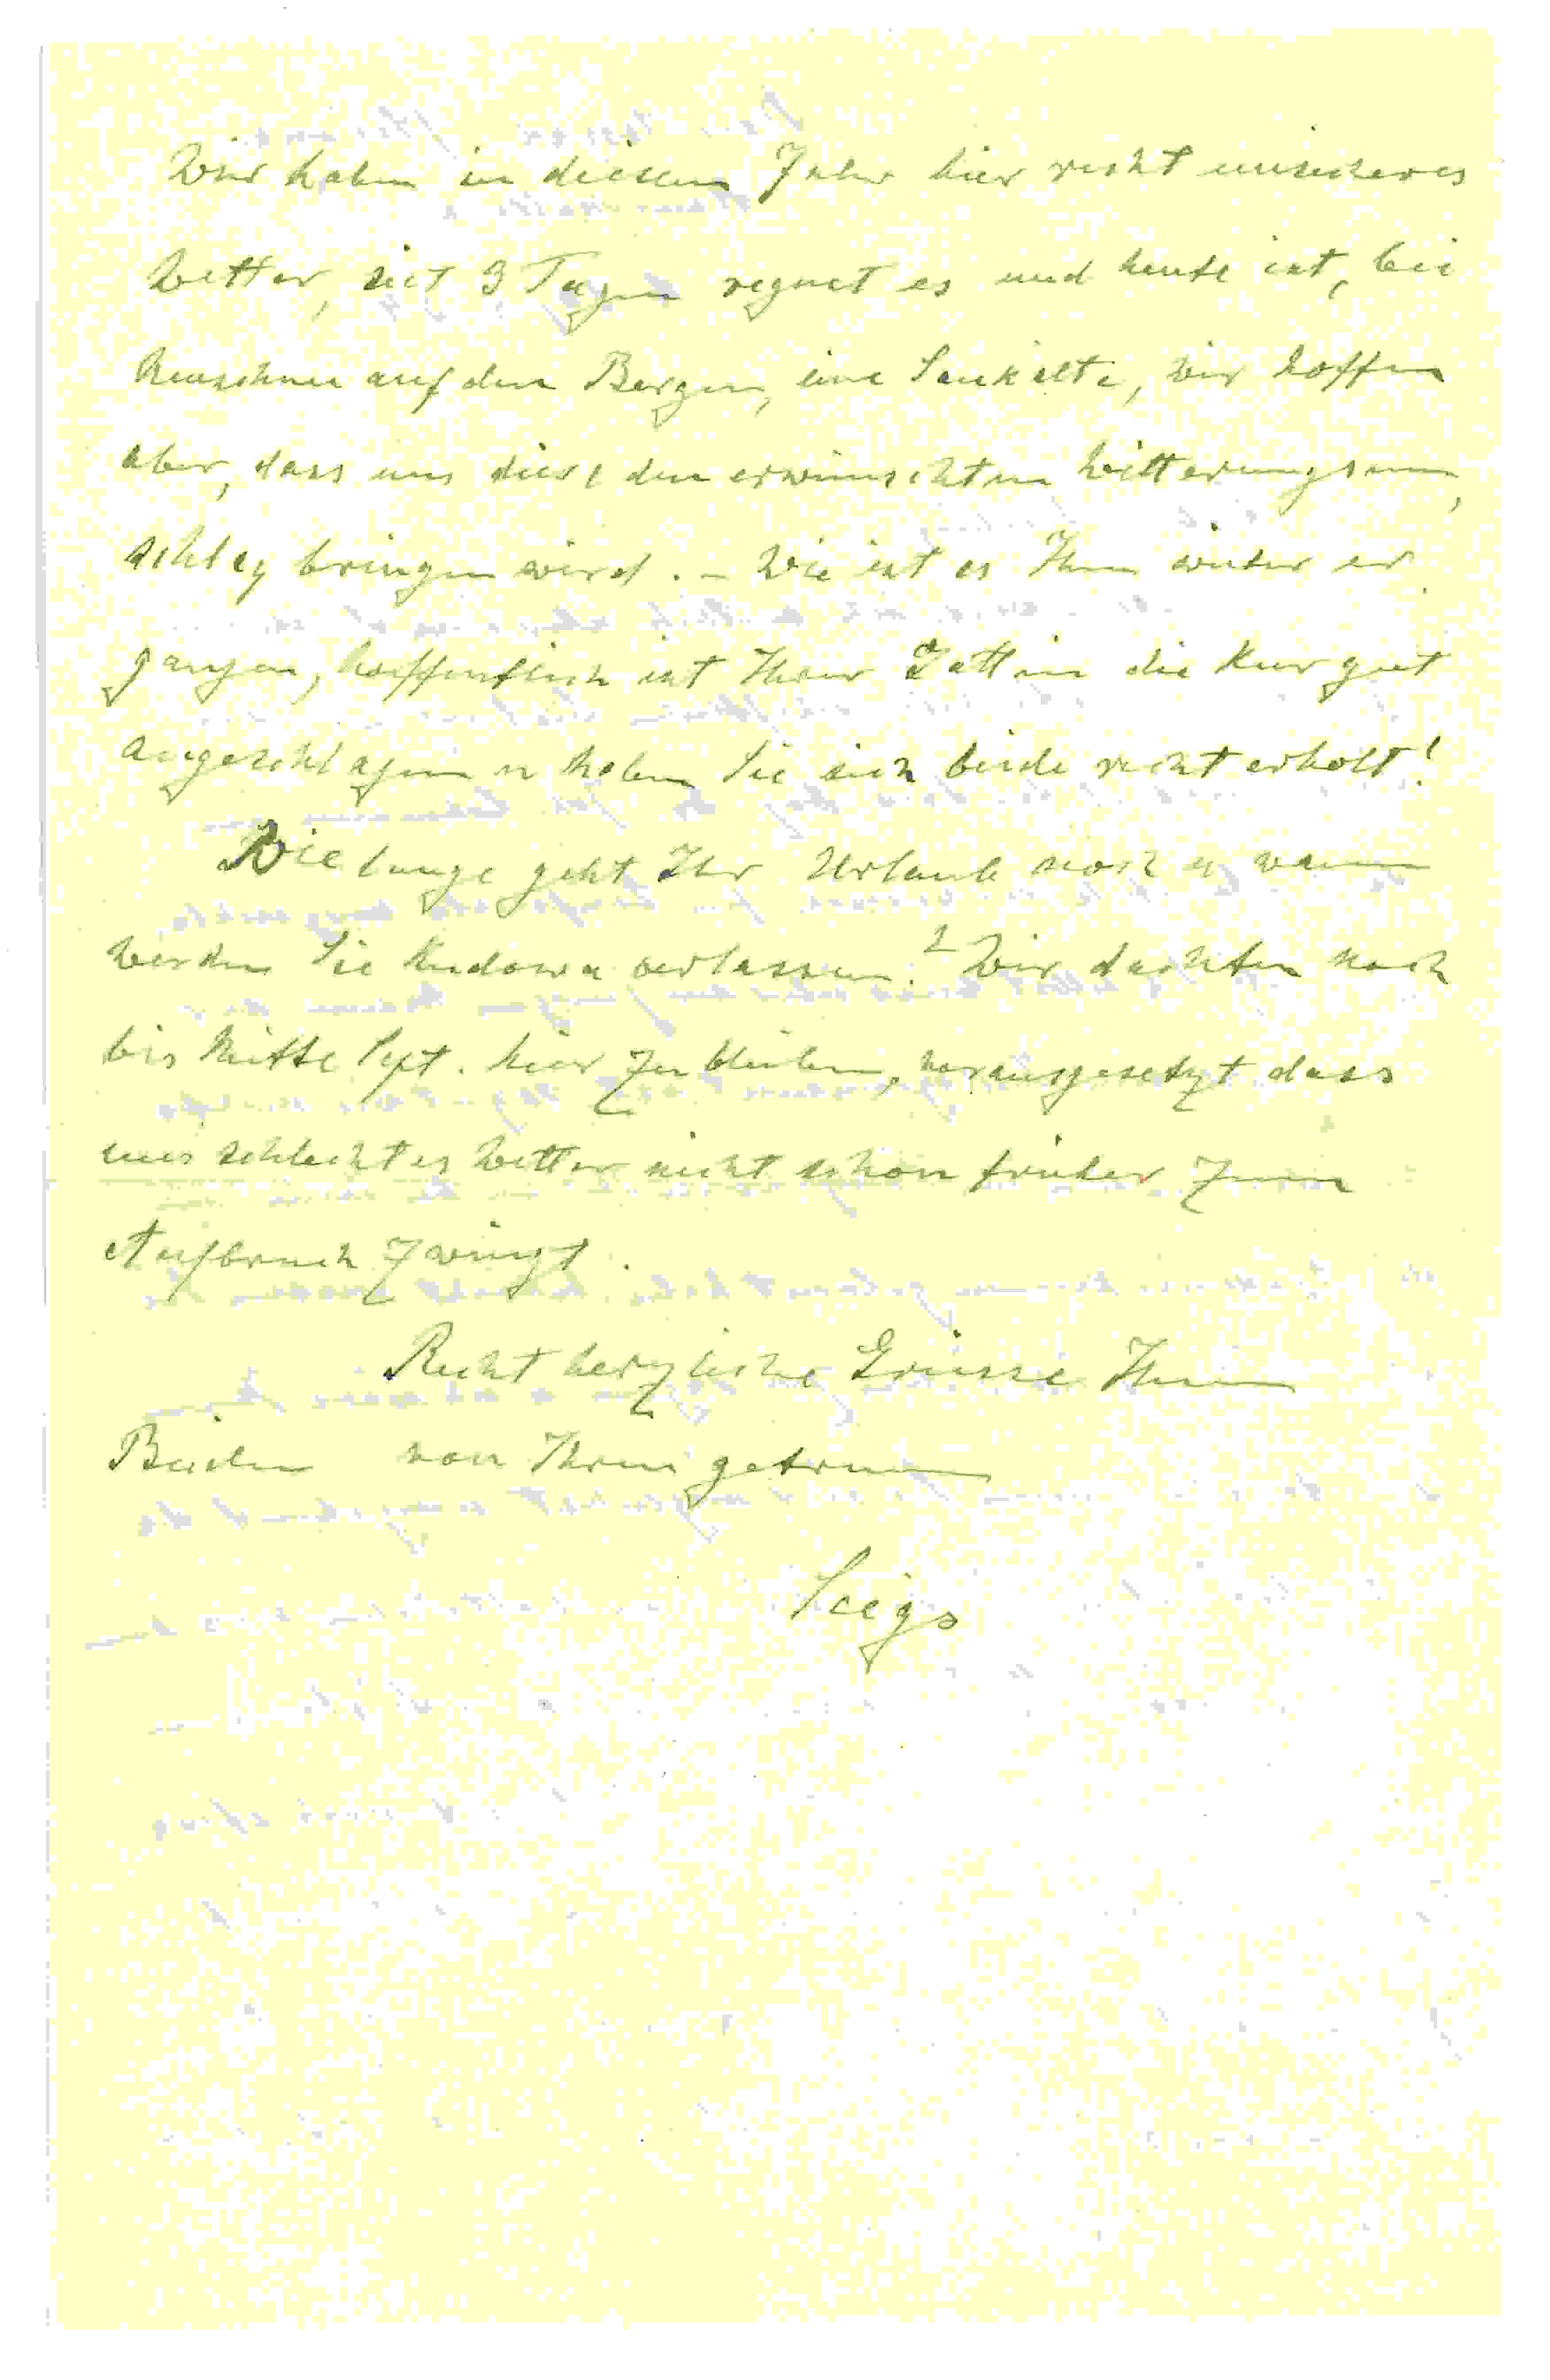 Wir haben in diesem Jahr hier recht unsicheres
Wetter, seit 3 Tagen regnet es und heute ist, bei
Neuschnee auf den Bergen, eine Saukälte, wir hoffen
aber, dass uns diese den erwünschten Witterungsum,
schlag bringen wird. – Wie ist es Ihnen weiter er
gangen, hoffentlich ist Ihrer Gattin die Kur gut
angeschlagen u haben Sie sich beide recht erholt!
Wie lange geht Ihr Urlaub noch u wann
werden Sie Kudowa verlassen? Wir dachten noch
bis Mitte Sept. hier zu bleiben, vorausgesetzt dass
uns schlechtes Wetter nicht schon früher zum
Aufbruch zwingt.
Recht herzliche Grüsse Ihnen
Beiden von Ihren getreuen